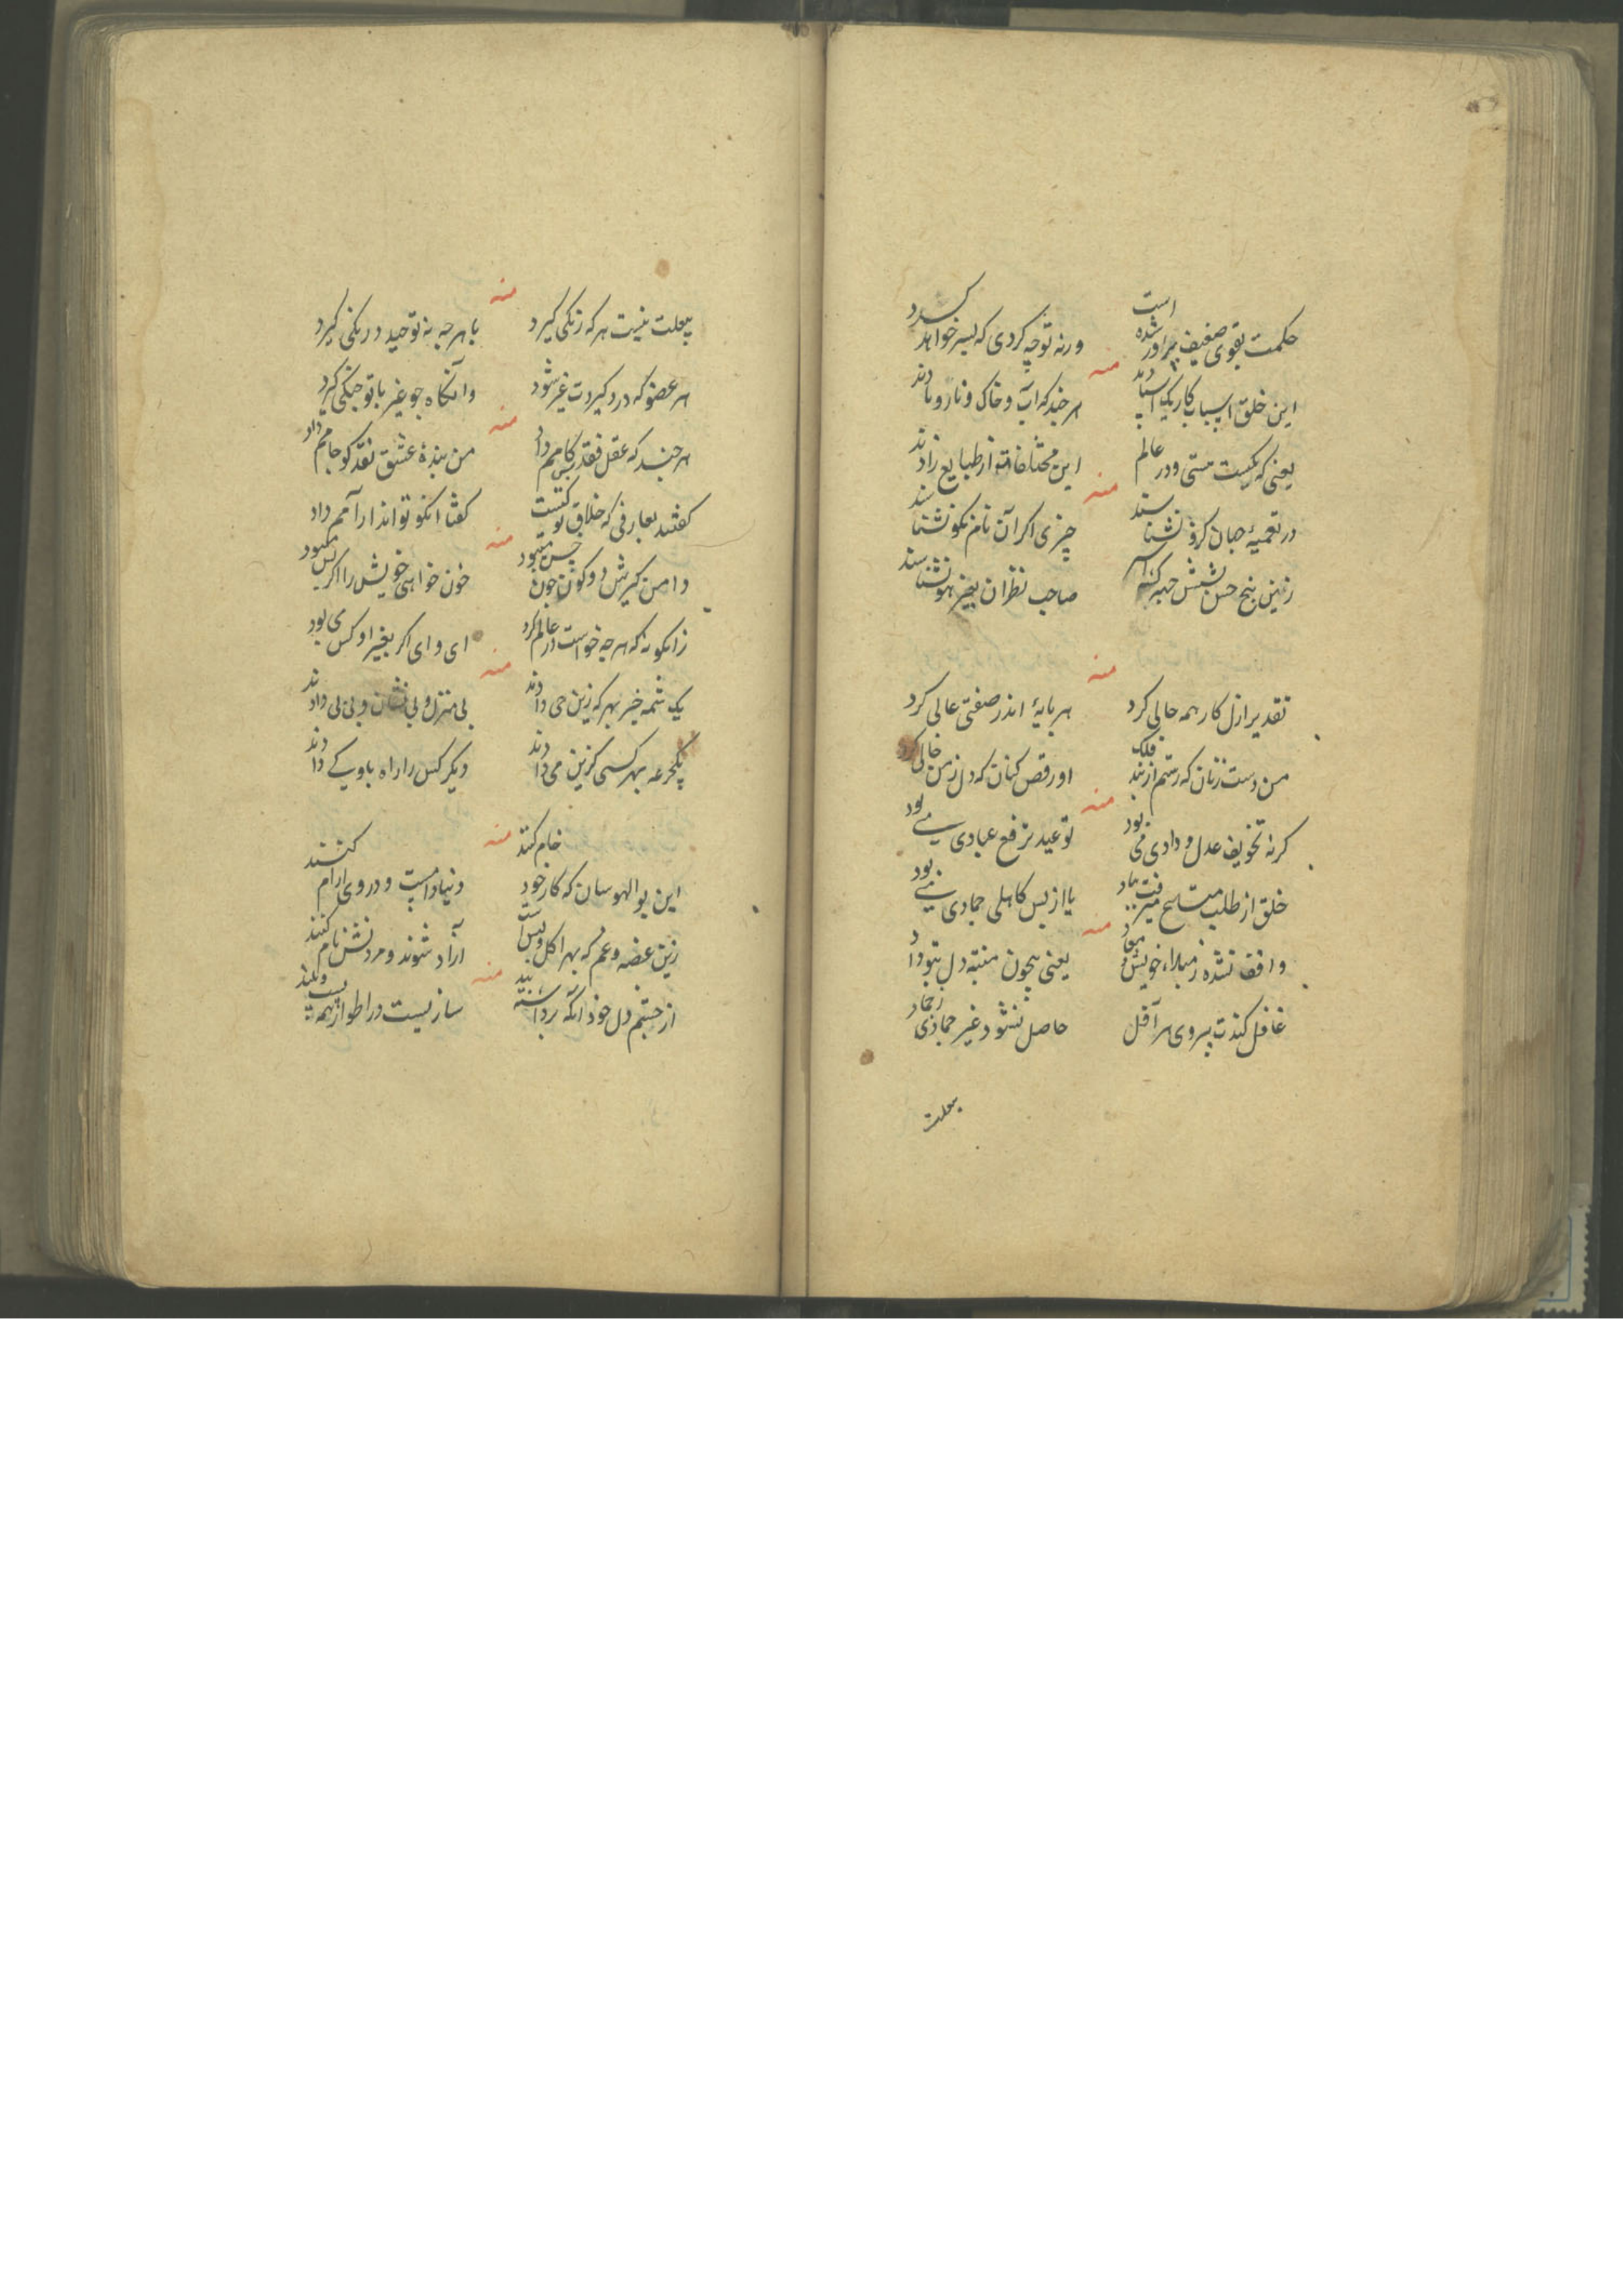 حکمت بقوی ضعیف پرآور شده است
ورنه تو چه کردی که پسر خواهد کرد
منه
این خلق اسباب کار یک استادند
هر چند که آب و خاک و نار و بادند
یعنی که یکیست هستی و در عالم
این مختلفات از طبایع زادند
منه
در تعمیهٔ جهان کرو نشناسند
چیزی اکر آن نام نکو نشناسند
زین پنج حس و شش جهه
صاحب نظران بغیر هو نشناسند
منه
تقدیر ازل کار همه حالی کرد
هر پایهٔ اندر صفتی عالی کرد
من دست زنان که رستم از بند فلک
او رقص کنان که دل ز من خالی کرد
منه
کرنه تخویف عدل و دادی می بود
توعید رفع عبادی می بود
خلق از طلب
یا از پس کاهلی جمادی می بود
منه
واقف نشده ز مبداء خویش و معاد
یعنی بیچون منبه دل بتو داد
غافل کندت پیروی هر آفل
حاصل نشود غیر جمادی ز جماد
بیعلت
منه
بیعلت نیست هر که زنکی کیرد
با هر چه نه توحید درنکی کیرد
هر عضو که درد کیردت غیر شود
وانکاه چو غیر با تو جنکی کیرد
منه
هر چند که عقل فقد کامم داد
من بندهٔ عشق نقد کو جامم داد
کفتند بعارفی که خلاق تو کیست
کفتا انکو تواند ارآمم داد
منه
دامن کیرش دو کون چون
خون خواهی خویش را اکر کس میبود
زانکونه که هر چه خواست در عالم کرد
ای وای اکر بغیر او کس می بود
منه
یک شمه خبر بهر که زین حی دادند
بی منزل و بی نشان و بی پی دادند
یکجرعه بهر کسی کزین می دادند
دیکر کس را راه باو کے دادند
منه
این بوالهوسان که کار خود خام کنند
دنیا دامست و در وی ارام کنند
زین غصه و غم که بهر اکل و لبس است
آزاد شوند و مردنش نام کنند
منه
از چشم دل خود آنکه برداشته بند
سازیست در اطوار همه پست و بلند